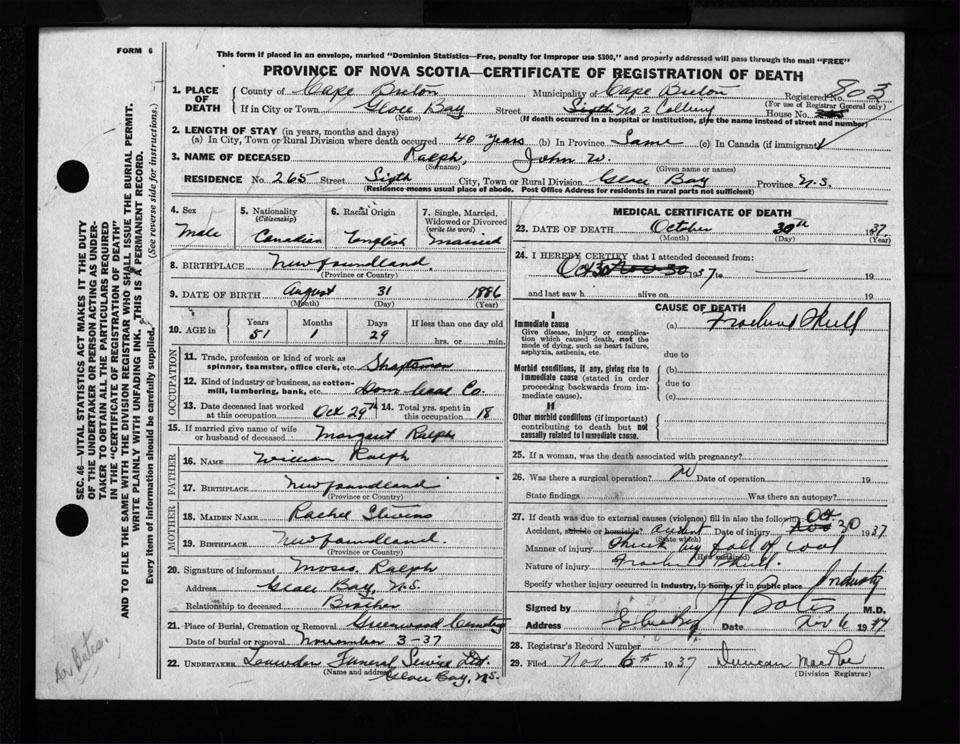 FORM 6
This form if placed in an envelope, marked "Dominion Statistics—Free, penalty for improper use $300," and properly addressed will pass through the mail "FREE"
PROVINCE OF NOVA SCOTIA—CERTIFICATE OF REGISTRATION OF DEATH
1. PLACE OF DEATH
County of Cape Breton Municipality of Cape Breton Registered No. 803
(For use of Registrar General only)
If in City or Town Glace Bay Street Sixth No 2 Colliery House No.
(Name) (If death occurred in a hospital or institution, give the name instead of street and number)
2. LENGTH OF STAY (in years, months and days)
(a) In City, Town or Rural Division where death occurred 40 years (b) In Province Same (c) In Canada (if immigrant)
3. NAME OF DECEASED Ralph, John W.
(Surname) (Given name or names)
RESIDENCE No. 265 Street Sixth City, Town or Rural Division Glace Bay Province N.S.
(Residence means usual place of abode. Post Office Address for residents in rural parts not sufficient)
4. Sex Male
5. Nationality (Citizenship) Canadian
6. Racial Origin English
7. Single, Married, Widowed or Divorced (write the word) Married
8. BIRTHPLACE Newfoundland.
(Province or Country)
9. DATE OF BIRTH August 31 1886
(Month) (Day) (Year)
10. AGE in Years 51 Months 1 Days 29 If less than one day old hrs. or min.
OCCUPATION
11. Trade, profession or kind of work as spinner, teamster, office clerk, etc. Shaftsman
12. Kind of industry or business, as cotton-mill, lumbering, bank, etc. Dom. Coal Co.
13. Date deceased last worked at this occupation Oct 29th 14. Total yrs. spent in this occupation 18
15. If married give name of wife or husband of deceased Margaret Ralph
FATHER
16. NAME William Ralph
17. BIRTHPLACE Newfoundland
(Province or Country)
MOTHER
18. MAIDEN NAME Rachel Stevens
19. BIRTHPLACE Newfoundland.
(Province or Country)
20. Signature of informant Moses Ralph
Address Glace Bay, N.S.
Relationship to deceased Brother
21. Place of Burial, Cremation or Removal Greenwood Cemetery
Date of burial or removal November 3-37
22. UNDERTAKER Funeral Service Ltd.
(Name and address) Glace Bay, N.S.
MEDICAL CERTIFICATE OF DEATH
23. DATE OF DEATH October 30th 1937
(Month) (Day) (Year)
24. I HEREBY CERTIFY that I attended deceased from:
Oct 30 Nov 30 1937 to — 19
and last saw h alive on 19
CAUSE OF DEATH
I
Immediate cause (a) Fractured Skull
Give disease, injury or complication which caused death, not the mode of dying, such as heart failure, asphyxia, asthenia, etc.
due to
Morbid conditions, if any, giving rise to immediate cause (stated in order proceeding backwards from immediate cause).
(b)
due to
(c)
II
Other morbid conditions (if important) contributing to death but not causally related to immediate cause.
25. If a woman, was the death associated with pregnancy?
26. Was there a surgical operation? No Date of operation 19
State findings Was there an autopsy?
27. If death was due to external causes (violence) fill in also the following: Oct
Accident, suicide or homicide? accident Date of injury Nov 30 1937
(State which)
Manner of injury Struck by fall of coal
(How sustained)
Nature of injury Fractured Skull.
Specify whether injury occurred in industry, in home, or in public place Industry
Signed by Bates M.D.
Address Glace Bay Date Nov 6 1937
28. Registrar's Record Number
29. Filed Nov 6th 1937 Duncan MacRae
(Division Registrar)
SEC. 46—VITAL STATISTICS ACT MAKES IT THE DUTY
OF THE UNDERTAKER OR PERSON ACTING AS UNDER-
TAKER TO OBTAIN ALL THE PARTICULARS REQUIRED
IN THE "CERTIFICATE OF REGISTRATION OF DEATH"
AND TO FILE THE SAME WITH THE DIVISION REGISTRAR WHO SHALL ISSUE THE BURIAL PERMIT.
WRITE PLAINLY WITH UNFADING INK. THIS IS A PERMANENT RECORD.
Every item of information should be carefully supplied. (See reverse side for instructions.)
Dr. Bates.